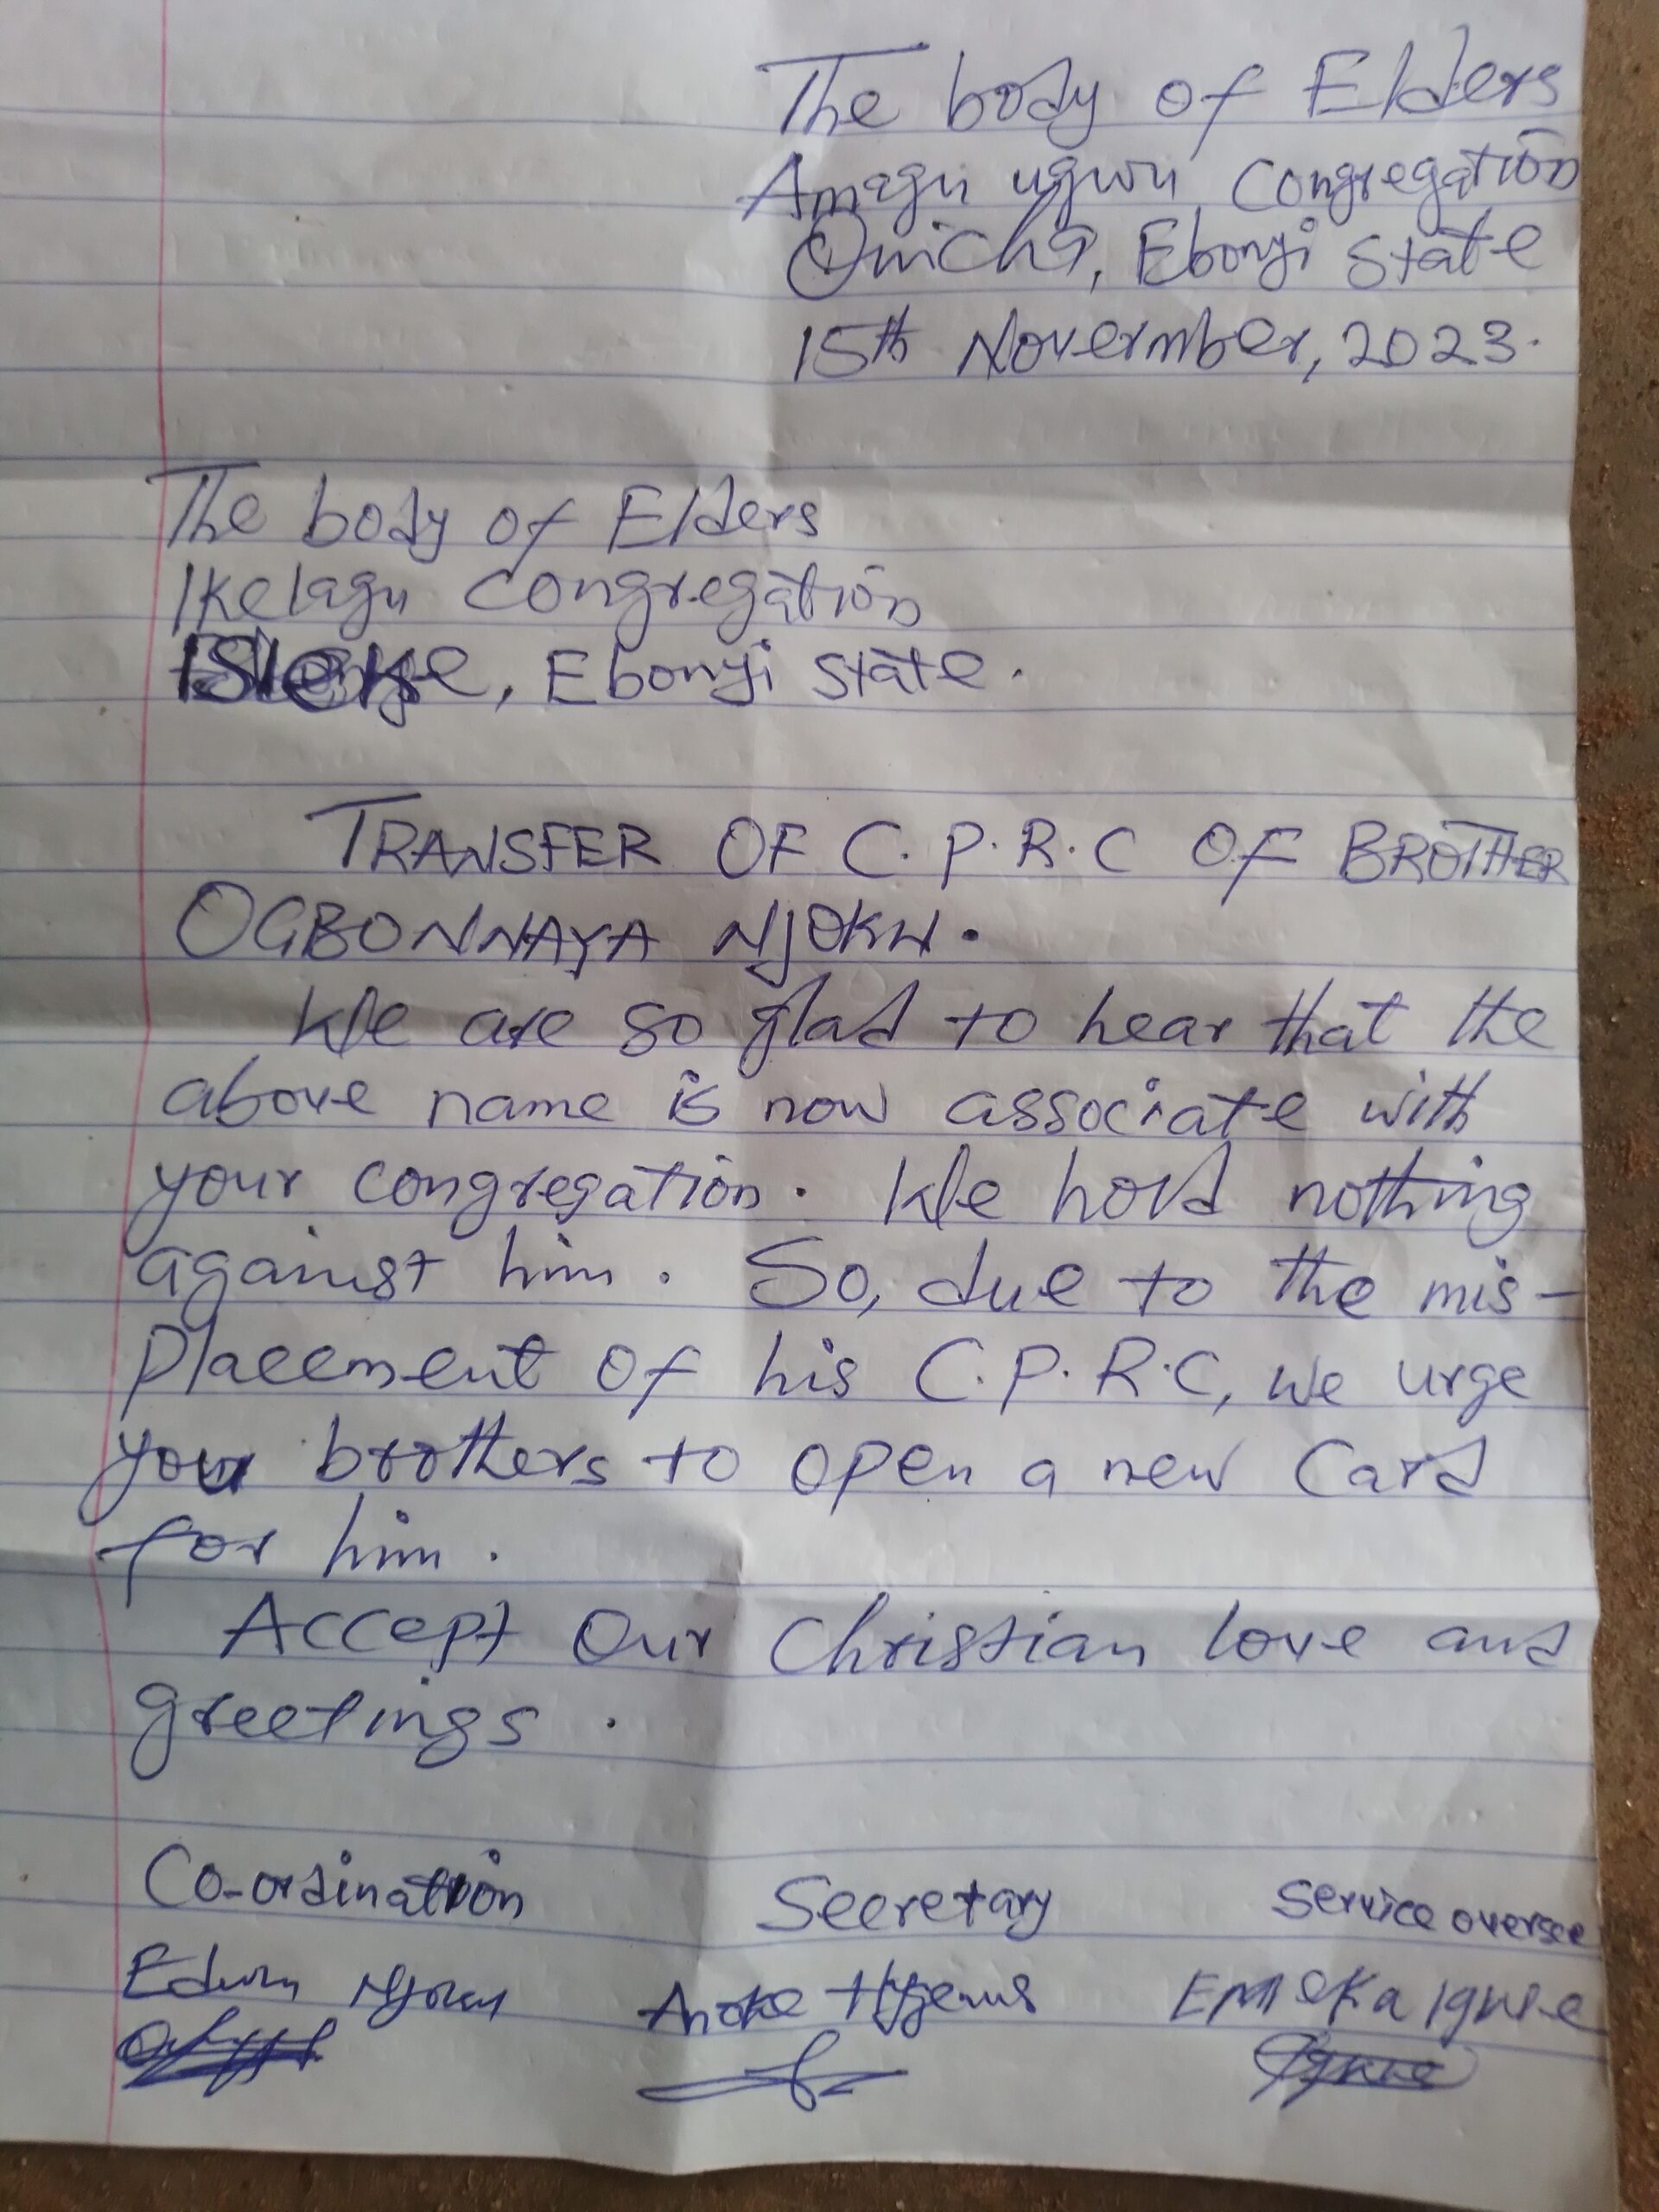 The body of Elders
Amagu ugwu Congregation
Onicha, Ebonyi State
15th November, 2023.
The body of Elders
Ikelagu Congregation
Isieke, Ebonyi State.
TRANSFER OF C.P.R.C OF BROTHER
OGBONNAYA NJOKU.
We are so glad to hear that the
above name is now associate with
your congregation. We hold nothing
against him. So, due to the mis-
placement of his C.P.R.C, we urge
you brothers to open a new Card
for him.
Accept Our Christian love and
greetings.
Co-ordination Secretary Service oversee
Edwin Njoku Anoke Hygenus Emeka Igwe
Igwe